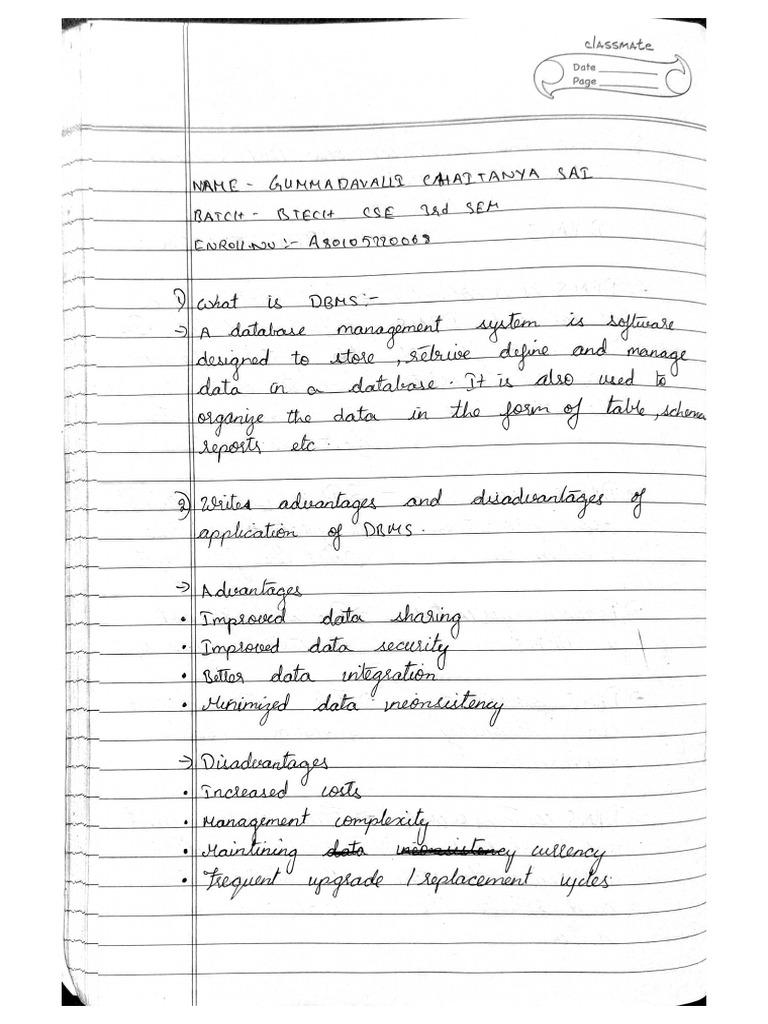 classmate
Date
Page
NAME - GUMMADAVALLI CHAITANYA SAI
BATCH - BTECH CSE 3rd SEM
ENROLL.NO :- A80105220068
1) What is DBMS :-
→ A database management system is software
designed to store, retrive define and manage
data in a database. It is also used to
organize the data in the form of table, schema
reports etc.
2) Writes advantages and disadvantages of
application of DBMS.
→ Advantages
• Improved data sharing
• Improved data security
• Better data integration
• Minimized data inconsistency
→ Disadvantages
• Increased costs
• Management complexity
• Maintining data inconsistency currency
• Frequent upgrade / replacement cycles.